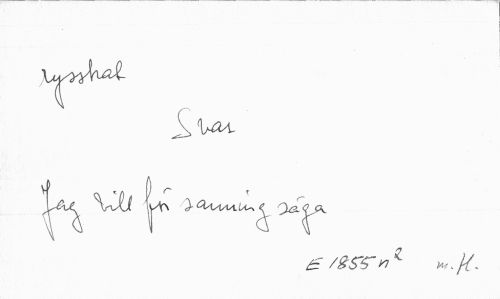 rysshat
Svar
Jag vill för sanning säga
E 1855 n² m.H.